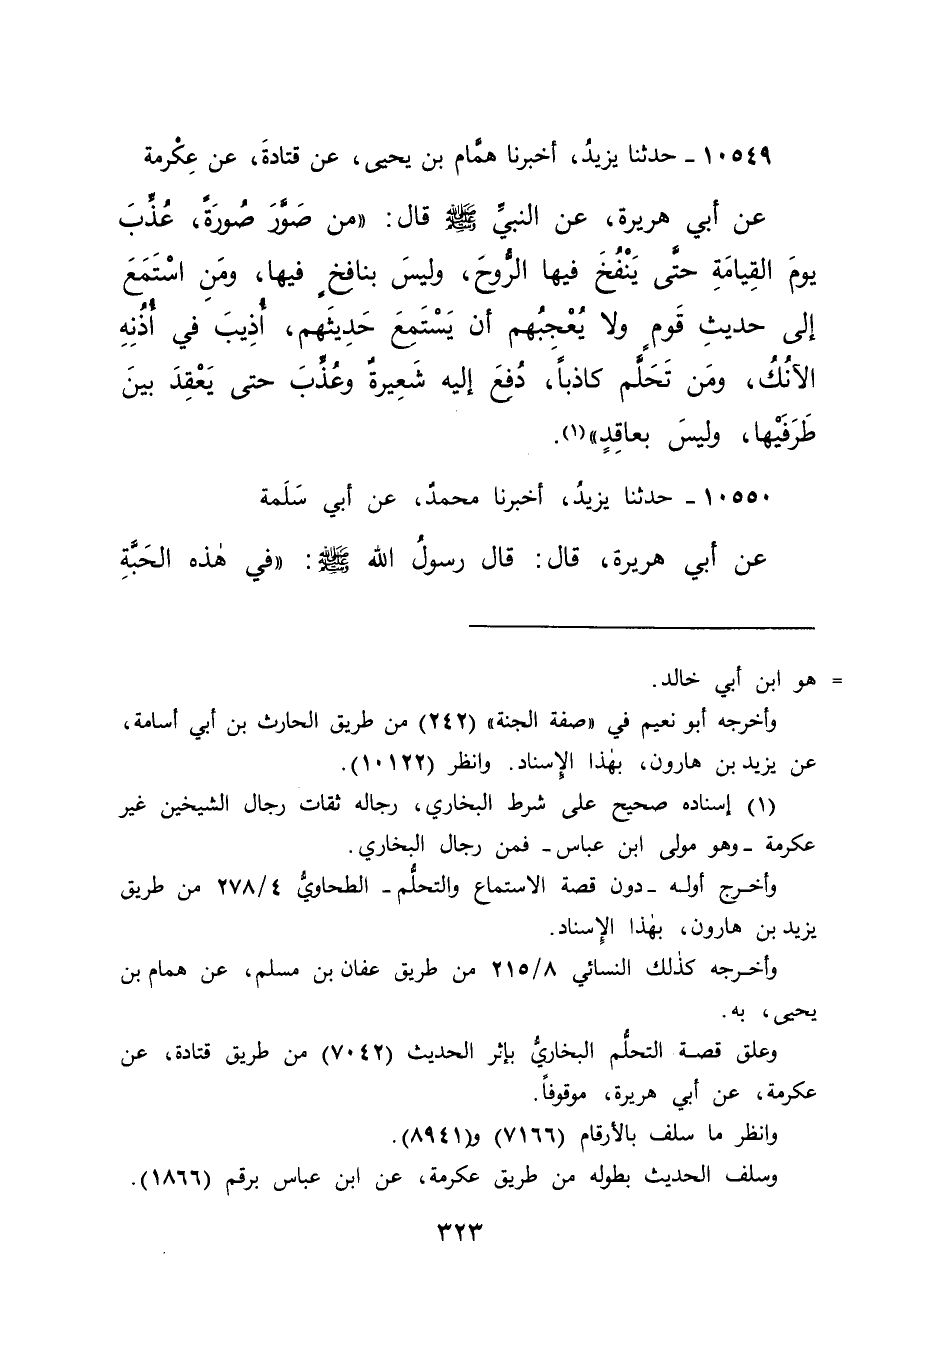 ١٠٥٤٩ ـ حدثنا يزيدُ، أخبرنا همَّام بن يحيى، عن قتادةَ، عن عِكْرمة
عن أبي هريرة، عن النبيِّ ﷺ قال: «من صَوَّرَ صُورَةً، عُذِّبَ
يومَ القِيامَةِ حتَّى يَنْفُخَ فيها الرُّوحَ، وليسَ بنافِخٍ فيها، ومَنِ اسْتَمَعَ
إلى حديثِ قَومٍ ولا يُعْجِبُهم أن يَسْتَمِعَ حَدِيثَهم، أُذِيبَ في أُذُنِهِ
الآنُكُ، ومَن تَحَلَّم كاذباً، دُفِعَ إليه شَعِيرةٌ وعُذِّبَ حتى يَعْقِدَ بينَ
طَرَفَيْها، وليسَ بعاقِدٍ»(١).
١٠٥٥٠ ـ حدثنا يزيدُ، أخبرنا محمدٌ، عن أبي سَلَمة
عن أبي هريرة، قال: قال رسولُ الله ﷺ: «في هٰذه الحَبَّةِ
= هو ابن أبي خالد.
وأخرجه أبو نعيم في «صفة الجنة» (٢٤٢) من طريق الحارث بن أبي أسامة،
عن يزيد بن هارون، بهٰذا الإسناد. وانظر (١٠١٢٢).
(١) إسناده صحيح على شرط البخاري، رجاله ثقات رجال الشيخين غير
عكرمة ـ وهو مولى ابن عباس ـ فمن رجال البخاري.
وأخرج أوله ـ دون قصة الاستماع والتحلُّم ـ الطحاويُّ ٢٧٨/٤ من طريق
يزيد بن هارون، بهٰذا الإسناد.
وأخرجه كذٰلك النسائي ٢١٥/٨ من طريق عفان بن مسلم، عن همام بن
يحيى، به.
وعلق قصة التحلُّم البخاريُّ بإثر الحديث (٧٠٤٢) من طريق قتادة، عن
عكرمة، عن أبي هريرة، موقوفاً.
وانظر ما سلف بالأرقام (٧١٦٦) و(٨٩٤١).
وسلف الحديث بطوله من طريق عكرمة، عن ابن عباس برقم (١٨٦٦).
٣٢٣